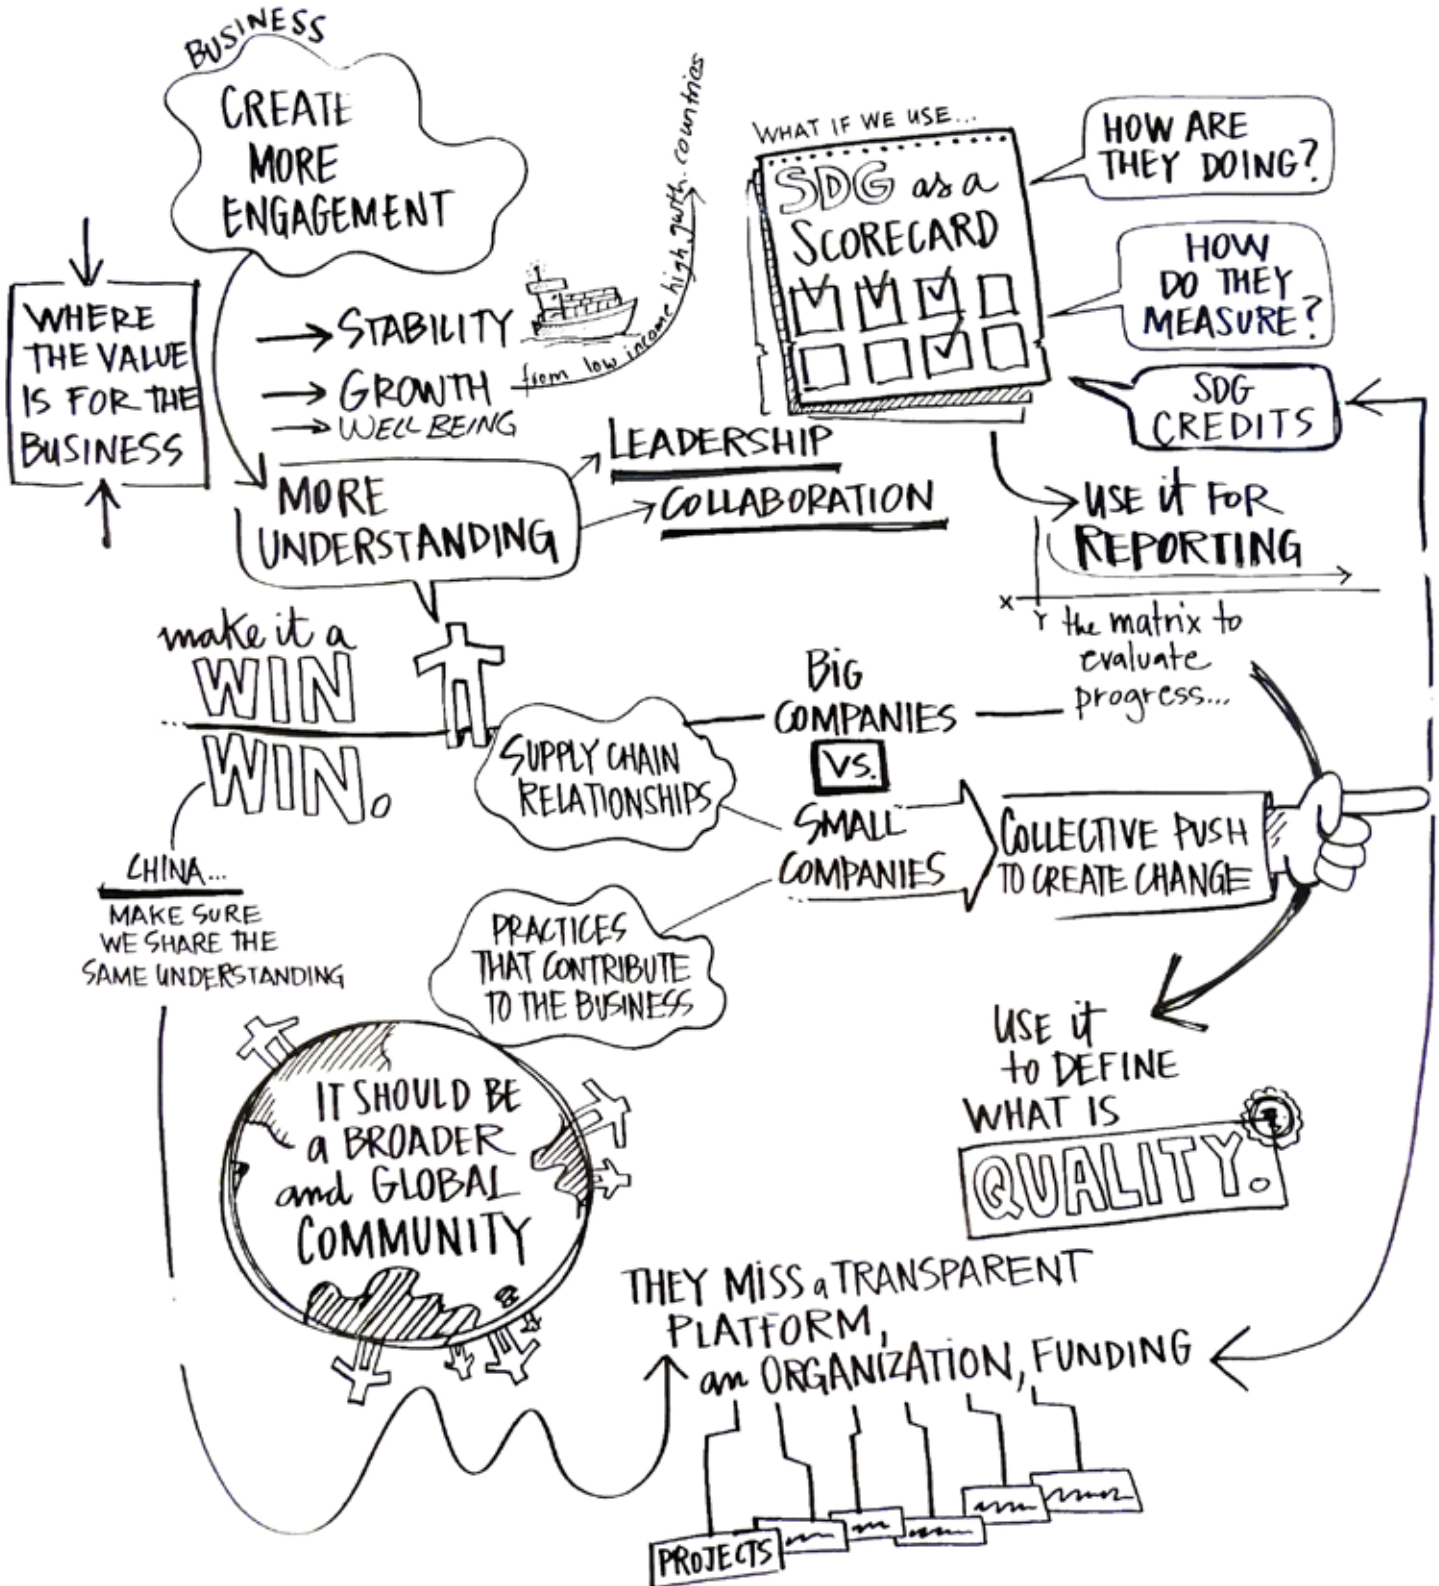 BUSINESS
CREATE
MORE
ENGAGEMENT
WHERE
THE VALUE
IS FOR THE
BUSINESS
STABILITY
GROWTH
from low income high gwth. countries
WELL BEING
MORE
UNDERSTANDING
LEADERSHIP
COLLABORATION
WHAT IF WE USE...
SDG as a
SCORECARD
HOW ARE
THEY DOING?
HOW
DO THEY
MEASURE?
SDG
CREDITS
USE it FOR
REPORTING
X
Y
the matrix to
evaluate
progress...
make it a
WIN
WIN.
CHINA...
MAKE SURE
WE SHARE THE
SAME UNDERSTANDING
SUPPLY CHAIN
RELATIONSHIPS
BiG
COMPANIES
VS.
SMALL
COMPANIES
COLLECTIVE PUSH
TO CREATE CHANGE
PRACTICES
THAT CONTRIBUTE
TO THE BUSINESS
IT SHOULD BE
a BROADER
and GLOBAL
COMMUNITY
USE it
to DEFINE
WHAT IS
QUALITY.
THEY MISS a TRANSPARENT
PLATFORM,
an ORGANIZATION, FUNDING
PROJECTS